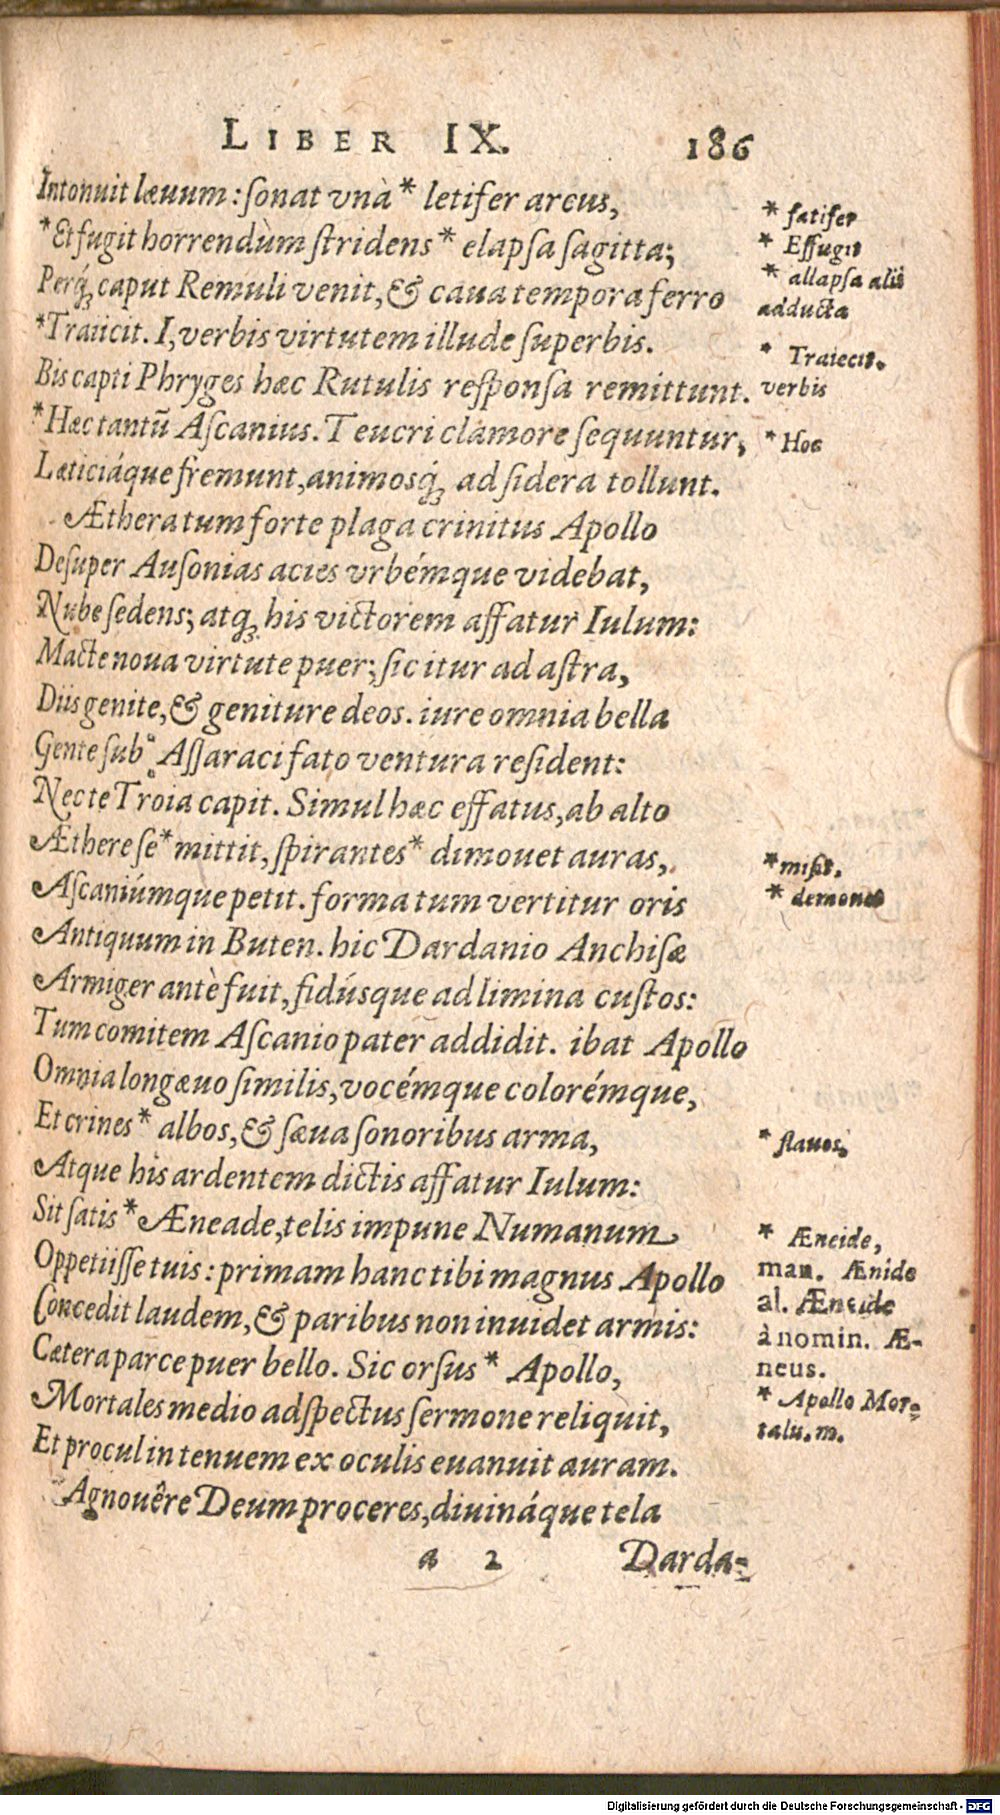 LIBER IX. 186
Intonuit læuum: ſonat vnà * letifer arcus,
* Et fugit horrendùm ſtridens * elapſa ſagitta;
Perq́ꝫ caput Remuli venit, & caua tempora ferro
* Traiicit. I, verbis virtutem illude ſuperbis.
Bis capti Phryges hæc Rutulis reſponſa remittunt.
* Hæc tantũ Aſcanius. Teucri clamore ſequuntur,
Læticiáque fremunt, animosq́ꝫ ad ſidera tollunt.
Ætherea tum forte plaga crinitus Apollo
Deſuper Auſonias acies vrbémque videbat,
Nube ſedens; atqꝫ his victorem affatur Iulum:
Macte noua virtute puer; ſic itur ad aſtra,
Diis genite, & geniture deos. iure omnia bella
Gente ſub Aſſaraci fato ventura reſident:
Nec te Troia capit. Simul hæc effatus, ab alto
Æthere ſe * mittit, ſpirantes * dimouet auras,
Aſcaniúmque petit. forma tum vertitur oris
Antiquum in Buten. hic Dardanio Anchiſæ
Armiger antè fuit, fidúsque ad limina cuſtos:
Tum comitem Aſcanio pater addidit. ibat Apollo
Omnia longæuo ſimilis, vocémque colorémque,
Et crines * albos, & ſæua ſonoribus arma,
Atque his ardentem dictis affatur Iulum:
Sit ſatis * Æneade, telis impune Numanum
Oppetiiſſe tuis: primam hanc tibi magnus Apollo
Concedit laudem, & paribus non inuidet armis:
Cætera parce puer bello. Sic orſus * Apollo,
Mortales medio adſpectus ſermone reliquit,
Et procul in tenuem ex oculis euanuit auram.
Agnouêre Deum proceres, diuináque tela
a 2 Darda-
* fatifer
* Effugit
* allapſa alii
adducta
* Traiecit.
verbis
* Hoc
* miſit.
* demouet
* flauos.
* Æneide,
man. Ænide
al. Æneide
à nomin. Æ-
neus.
* Apollo Mor-
taliū. m.
Digitalisierung gefördert durch die Deutsche Forschungsgemeinschaft - DFG